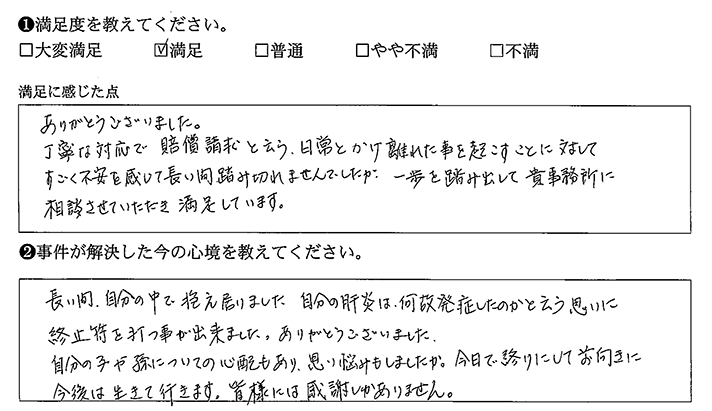 ❶満足度を教えてください。
□大変満足 ☑満足 □普通 □やや不満 □不満
満足に感じた点
ありがとうございました。
丁寧な対応で 賠償請求と云う、日常とかけ離れた事を起こすことに対して
すごく不安を感じて長い間踏み切れませんでしたが、一歩を踏み出して 貴事務所に
相談させていただき 満足しています。
❷事件が解決した今の心境を教えてください。
長い間、自分の中で 抱え居りました 自分の肝炎は、何故発症したのかと云う思いに
終止符を打つ事が出来ました。ありがとうございました。
自分の子や孫についての心配もあり、思い悩みもしましたが、今日で終りにして 前向きに
今後は生きて行きます。皆様には感謝しかありません。